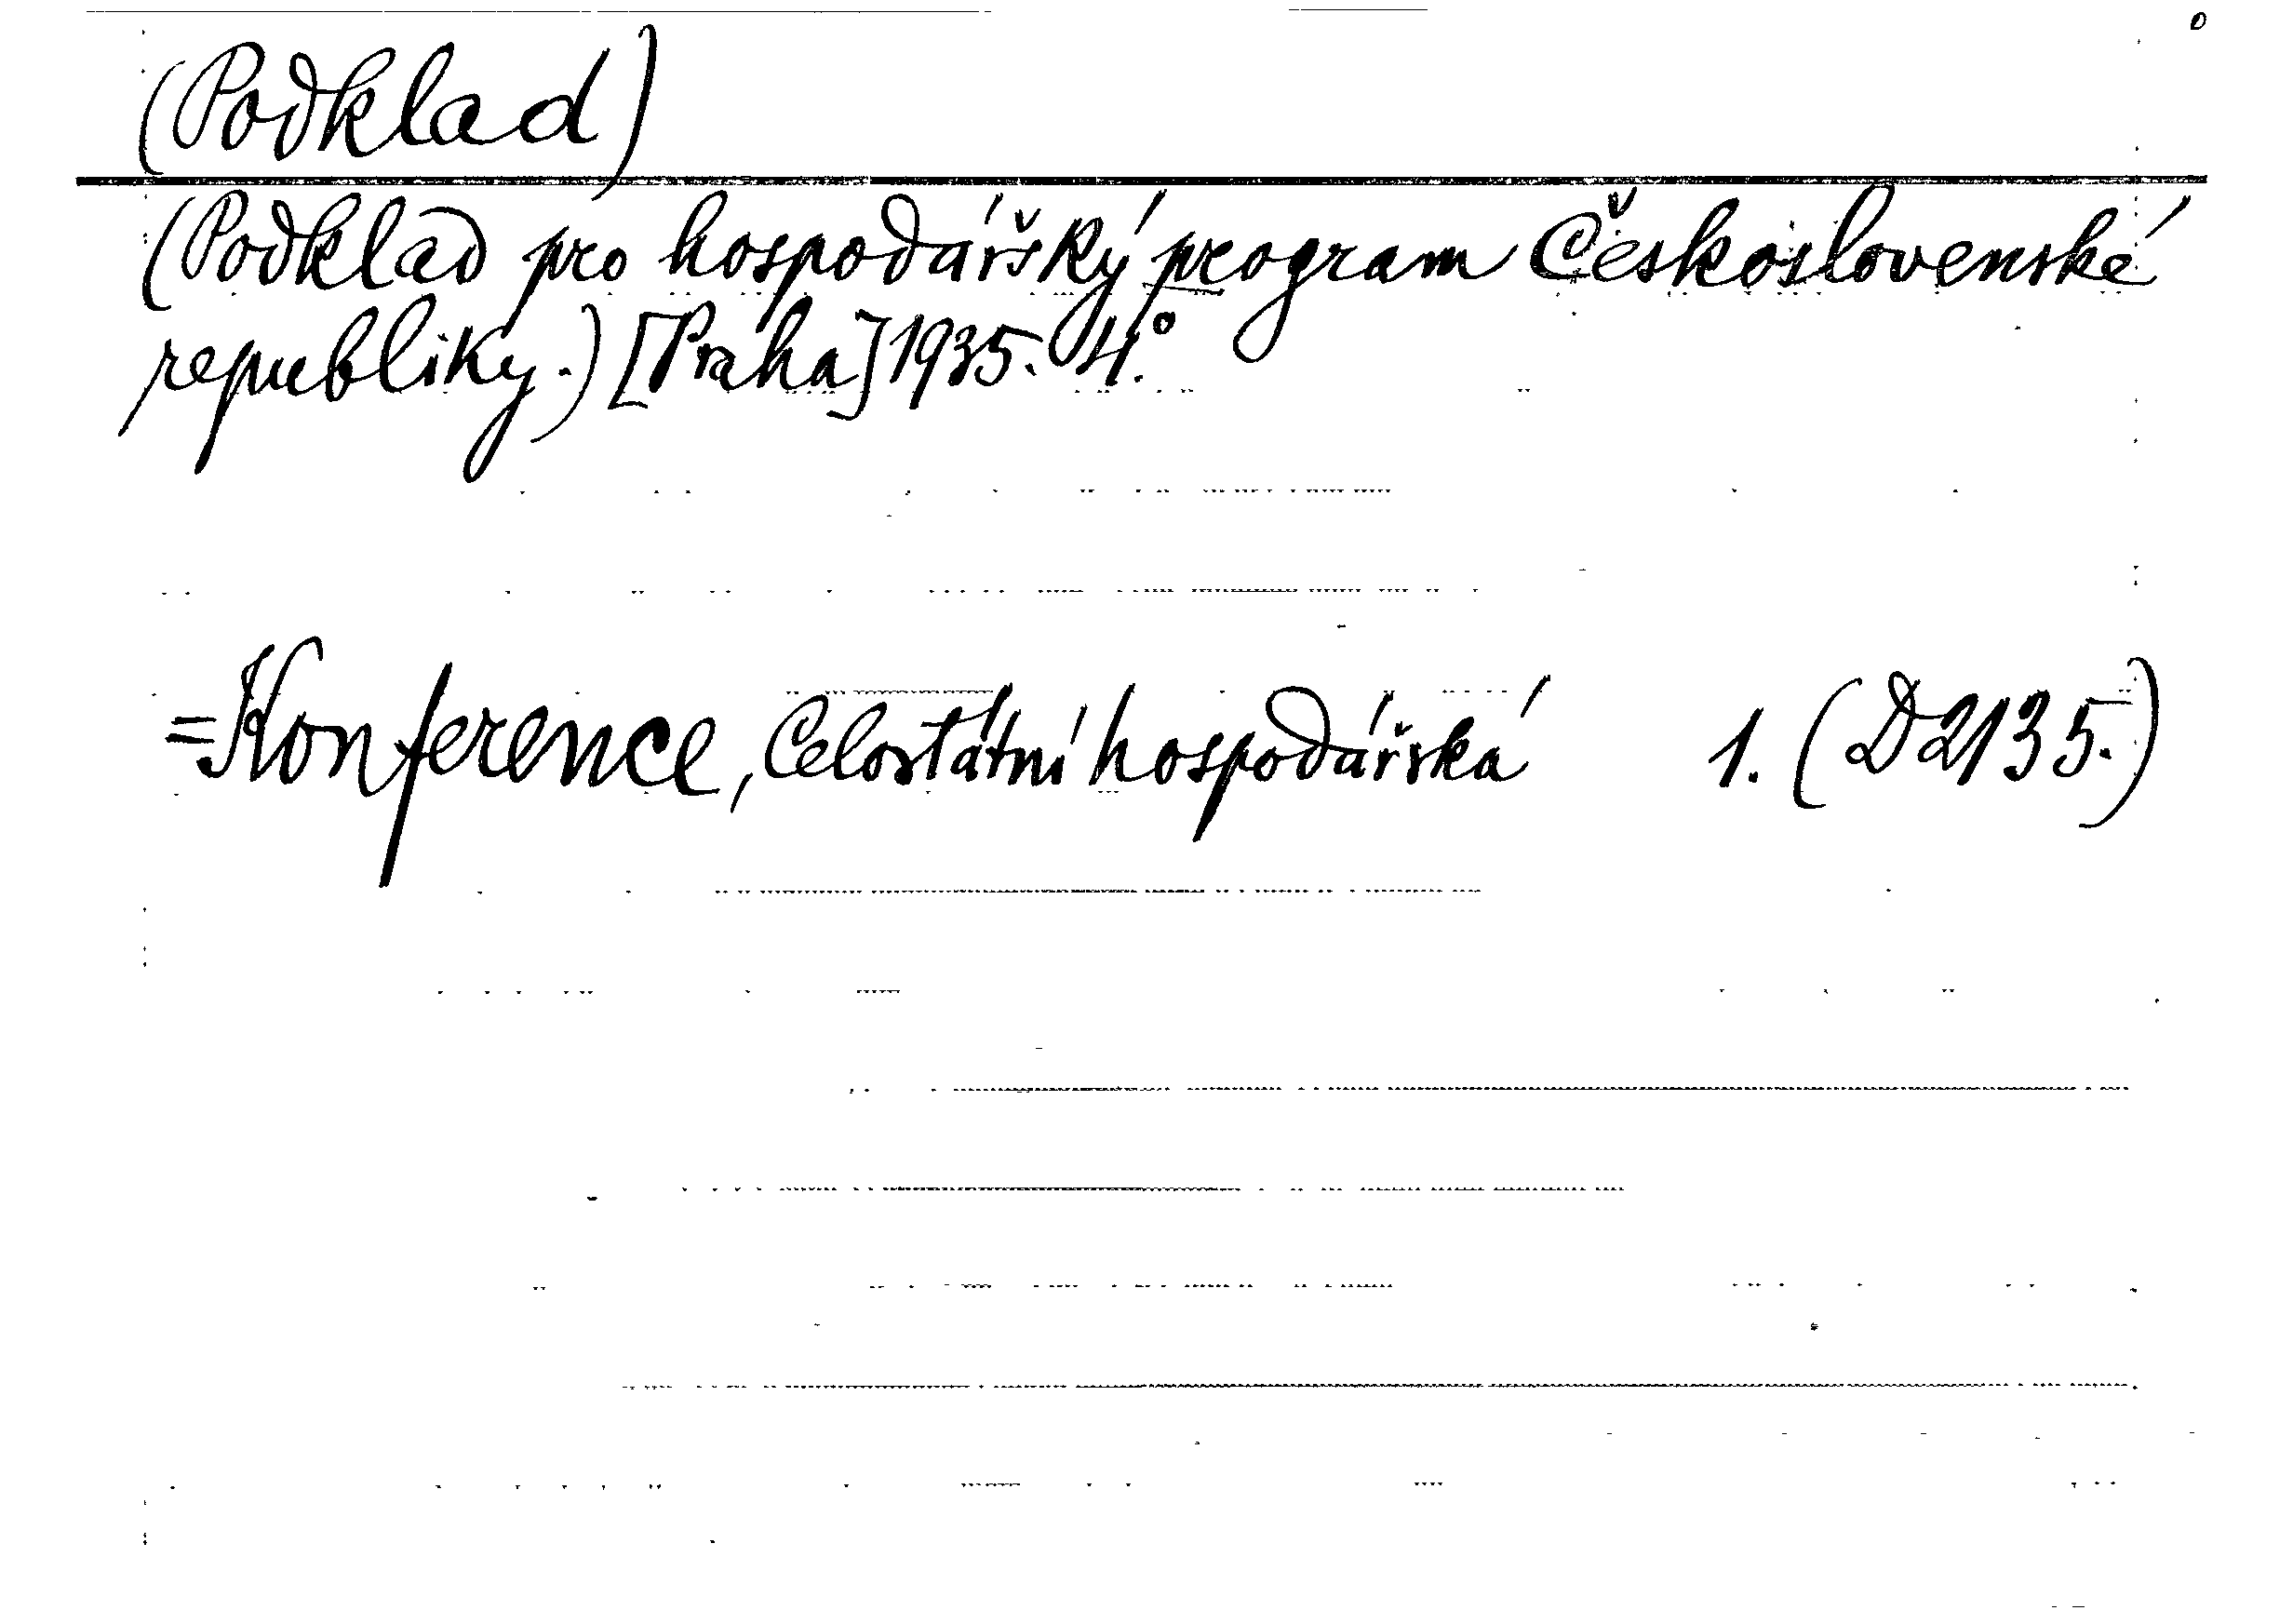 (Podklad)
(Podklad pro hospodářský program Československé
republiky.) [Praha] 1935. 4.°
=Konference, Celostátní hospodářská 1. (D2135.)